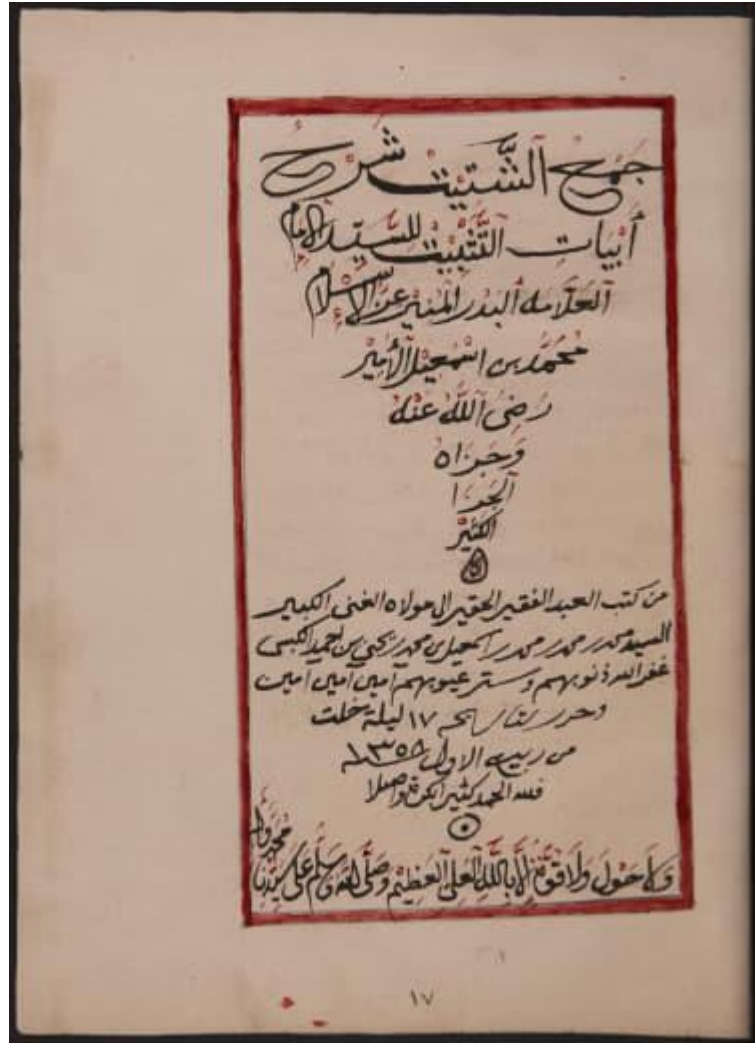 جَمْعُ الشَّتِيتْ شَرْحُ
أَبْيَاتِ التَّثْبِيتْ للسَّيِّد الإمام
العلّامه البدر المنير عز الإسلام
محمّد بن اسمعيل الأمير
رضي الله عنه
وجزاه
الجزا
الكثير
من كتب العبد الفقير الحقير الى مولاه الغني الكبير
السيد محمد بن محمد بن اسمعيل بن محمد بن يحيى بن احمد الكبسي
غفر الله ذنوبهم وستر عيوبهم آمين آمين امين
وحرر بتاريخه ١٧ ليلة خلت
من ربيع الاول ١٣٥٨
فلله الحمد كثيرا بكرة واصيلا
ولا حول ولا قوّة إلّا بالله العلي العظيم وصلّى الله وسلّم على سيّدنا
محمد وآله
١٧